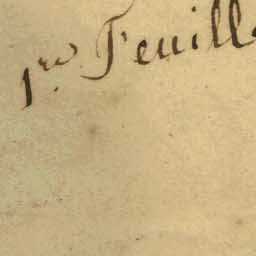 1re. Feuill